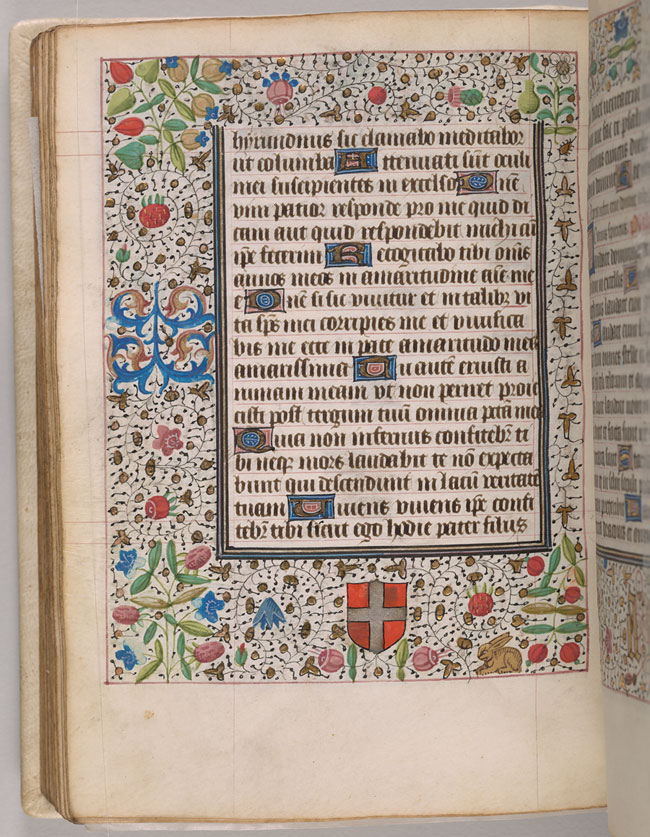 hyrundinis sic clamabo meditabor
ut columba Attenuati sūt oculi
mei suscipientes in excelso Dñe
vim patior responde pro me quid di
cam aut quid respondebit michi cū
ip̄e fecerim Recogitabo tibi om̄s
annos meos in amaritudine aīe me
e Dñe si sic vivitur et in talibꝫ vi
ta sp̄s mei corripies me et vivifica
bis me ecce in pace amaritudo mea
amarissima Tu autē eruisti a
nimam meam ut non periret proie
cisti post tergum tuū omnia pc̄ta mea
Quia non infernus confitebr̄ ti
bi neqꝫ mors laudabit te nō expecta
bunt qui descendunt in lacū veritatē
tuam Viuens viuens ip̄e confi
tebr̄ tibi sicut ego hodie pater filiis